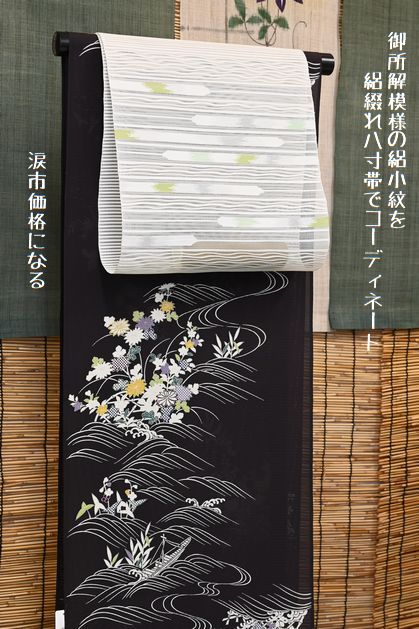 御所解模様の絽小紋を
絽綴れ八寸帯でコーディネート
涼市価格になる